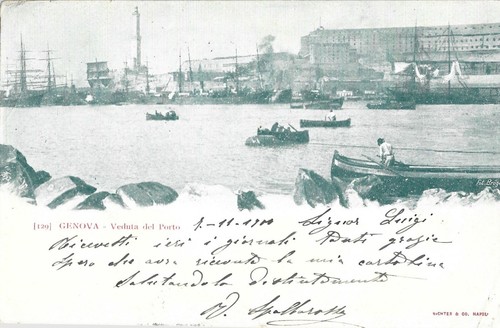 [129] GENOVA - Veduta del Porto
7-11-900 Signor Luigi.
Ricevetti ieri i giornali Tanti grazie
Spero che avra ricevuto la mia cartolina
Salutandola distintamente
V. Spallarossa
RICHTER & CO. NAPOLI